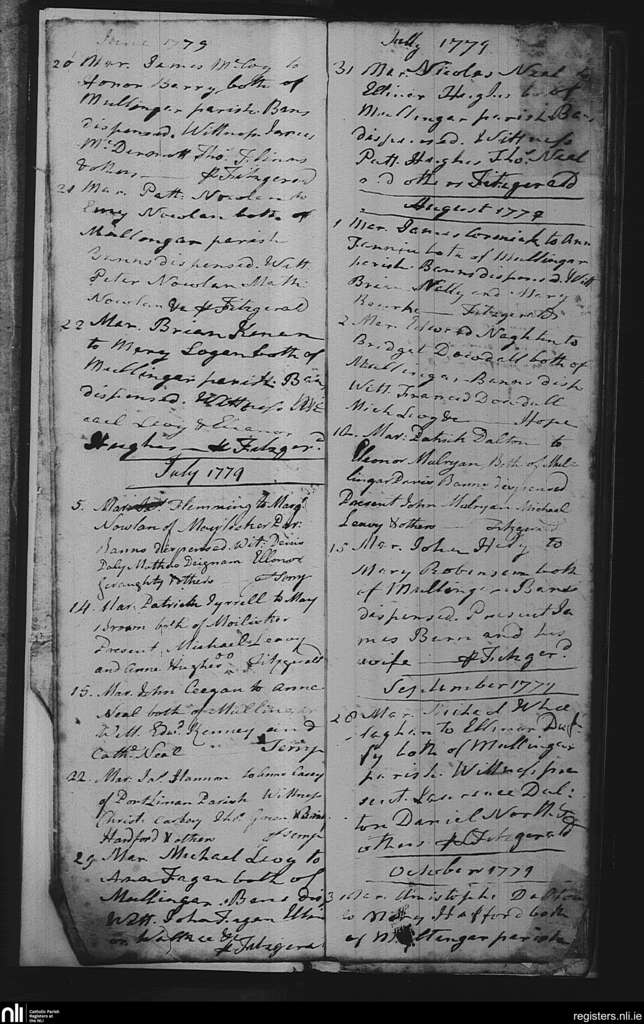 June 1779
20 Mar. James McCoy to
Honor Barry both of
Mullingar parish Bans
dispensed. Wittness James
McDermott Thos.
& others — Fitzgerald
21 Mar. Patt. Nowlan to
Nowlan both of
Mullongar parish
Banns dispensed. Witt
Peter Nowlan Math:
Nowlan &c Fitzgerald
22 Mar. Brian Kenan
to Mary Logan both of
Mullingar parish. Bans
dispensed. Wittness Mi
cael Levy & Eleanor
Hughes — Fitzger.d
July 1779
5. Mar. Flemming to Marg.t
Nowlan of Moylisker Par.
Banns dispensed. Wit: Denis
Daly Mathew Deignam Ellonor
Geraughty & others
14. Mar. Patrick Tyrrell to Mary
both of Moilisker
Present Michael Leavy
and Anne Hughes Fitzgerald
15. Mar. John Coegan to Anne
Neal both of Mullingar
Witt. Edw.d Kenney and
Cath.e Neal
22. Mar. Jas. Hannon to Anne Casey
of Portliman Parish Wittness
Christ. Casboy Thos.
Handford & other
29 Mar. Michael Levy to
Ana Fagan both of
Mullingar. Bans dis
Witt. John Fagan Ellin
or Wallace &c Fitzgeral
July 1779
31 Mar. Nicolas Neal to
Ellinor Hughes bo. of
Mullingar parish Bans
dispensed. Wittness
Patt Hughes Thos. Neal
and others Fitzgerald
August 1779
1 Mar. James Cormick to Ann
both of Mullingar
parish Banns dispensed. Witt
Brian Nally and Mary
Rourke — Fitzgerald
2. Mar. Edward Naghten to
Bridget Dowdall both of
Mullingar Banns disp
Witt. Francis Dowdall
Mich Levy &c — Hope
10. Mar. Patrick Dalton to
Eleonor Mulryan Both of Mul-
lingar Parris Banns despensed
Present John Mulryan Michael
Leavy & others — Fitzgerald
15 Mar. John to
Mary Robinson both
of Mullingar Bans
dispensed. Present Ja
mes Benn and his
wife — Fitzger.d
September 1779
28 Mar. Michael Whee
laghan to Ellinor Duf-
fy both of Mullingar
parish. Wittness pre
sent. Lawrence Dal-
ton Daniel North &
others Fitzgerald
October 1779
3 Mar. Christophe Dalton
to Mary Hafford both
of Mullengar parish
nli
Catholic Parish
Registers at
the NLI
registers.nli.ie